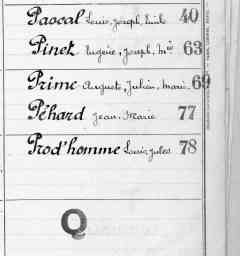 Pascal Louis, Joseph, Emile 40
Pinet Eugène, Joseph, Mie 63
Prime Auguste, Julien, Marie 69
Péhard Jean-Marie 77
Prod'homme Louis, Jules 78
Q